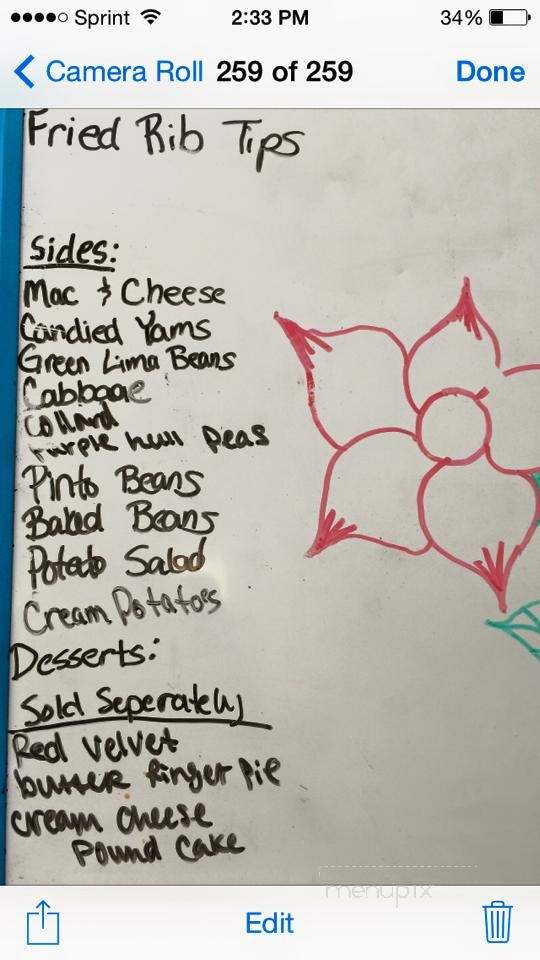 Sprint 2:33 PM 34%
Camera Roll 259 of 259 Done
Fried Rib Tips
Sides:
Mac & Cheese
Candied Yams
Green Lima Beans
Cabbage
Collard
Purple hull Peas
Pinto Beans
Baked Beans
Potato Salad
Cream Potatoes
Desserts:
Sold Seperately
Red Velvet
butter finger Pie
Cream Cheese
Pound Cake
menupix
Edit